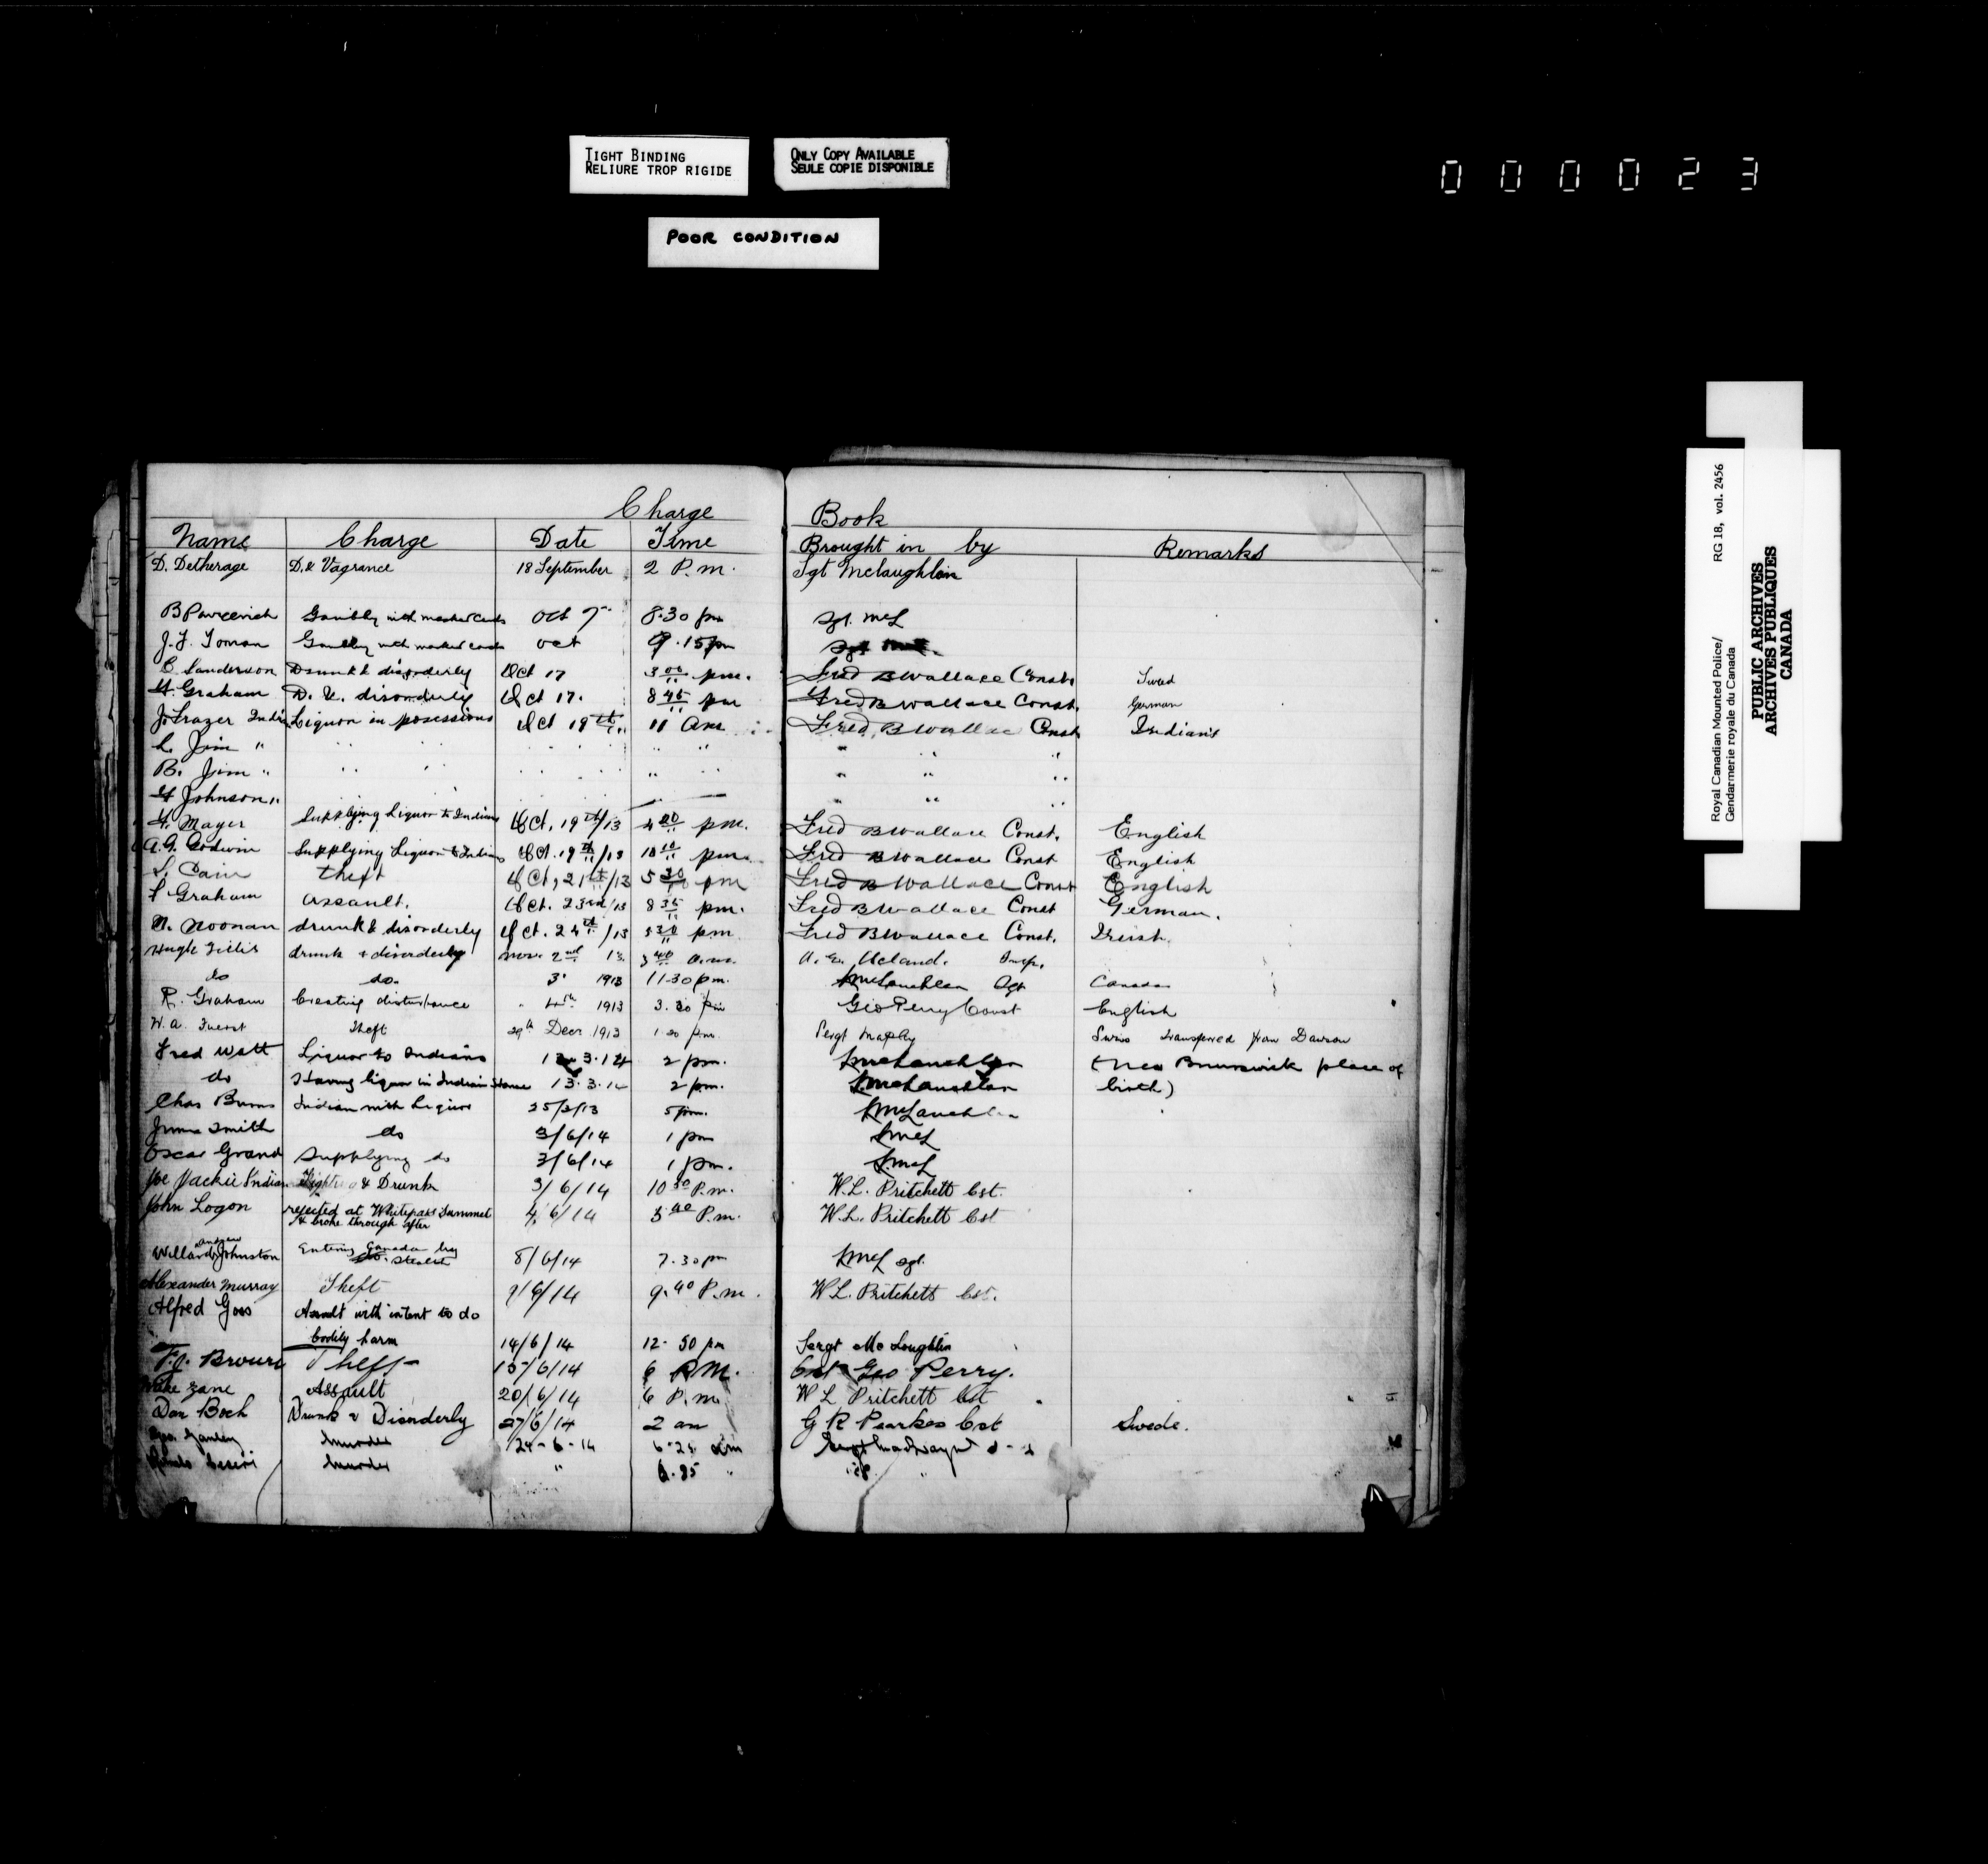 TIGHT BINDING
RELIURE TROP RIGIDE
ONLY COPY AVAILABLE
SEULE COPIE DISPONIBLE
000023
POOR CONDITION
Royal Canadian Mounted Police/ RG 18, vol. 2456
Gendarmerie royale du Canada
PUBLIC ARCHIVES
ARCHIVES PUBLIQUES
CANADA
Charge Book
Name Charge Date Time Brought in by Remarks
D. Detherage D. & Vagrance 18 September 2 P.m. Sgt Mclaughlin
Gambling with marked cards Oct 8.30 pm Sgt. McL
J. F. Toman Gambling with marked cards oct 9.15 pm
C. Sanderson Drunk & disorderly Oct 17 3 00 pm. Fred B Wallace Const. Swed
H. Graham D. & disorderly Oct 17. 8 45 pm Fred B Wallace Const. German
J. Frazer Indian Liquor in posessions Oct 18th 11 Am Fred B Wallace Const Indians
L. Jim " " " " " " " " "
B. Jim " " " " " " " " "
H Johnson " " " "
H. Mayer Supplying Liquor to Indians Oct. 19th/13 4 00 pm. Fred B Wallace Const. English
A. G. Godwin Supplying Liquor to Indians Oct. 19th/13 10 10 pm. Fred B Wallace Const English
S. Cain theft Oct, 21st/13 5 30 pm Fred B Wallace Const English
F Graham assault. Oct. 23rd/13 8 35 pm. Fred B Wallace Const German.
N. Noonan drunk & disorderly Oct. 24th/13 pm Fred B Wallace Const. Irish.
Hugh Gillis drunk & disorderly Nov. 2nd 13 3 40 a.m. A. E. Acland. Insp.
do do. 3rd 1913 11.30 pm. McLauchlan Sgt Canada
R. Graham Creating disturbance " 4th 1913 3.30 pm Geo Perry Const English
W. A. Fuerst Theft 29th Decr 1913 1.30 p.m. Sergt Mapley Swiss transferred from Dawson
Fred Watt Liquor to Indians 13.3.14 2 pm. McLauchlan (New Brunswick place of
do Having liquor in Indian House 13.3.14 2 pm. McLauchlan birth)
Chas Burns Indian with Liquor 5 pm. McLauchlan
Smith do 3/6/14 1 pm McL
Oscar Grand Supplying do 3/6/14 1 pm. McL
Joe Jackie Indian Fighting & Drunk 3/6/14 10 30 P.m. W.L. Pritchett Cst.
John Logon rejected at Whitepass Summet 4/6/14 P.m. W.L. Pritchett Cst
& broke through after
Andrew
Willard Johnston Entering Canada by 8/6/14 7.30 pm McL Sgt.
stealth
Alexander Murray Theft 9/6/14 9.40 P.m. W L. Pritchett Cst.
Alfred Goos Assault with intent to do
bodily harm 14/6/14 12-50 pm Sergt McLoughlin
F.J. Theft 15/6/14 6 P.M. Cst Geo Perry.
Assault 20/6/14 6 P.m. W L Pritchett Cst
Dan Boch Drunk & Disorderly 27/6/14 2 am G R Pearkes Cst Swede.
Geo. Ganley Murder 24-6-14 am
Murder " "